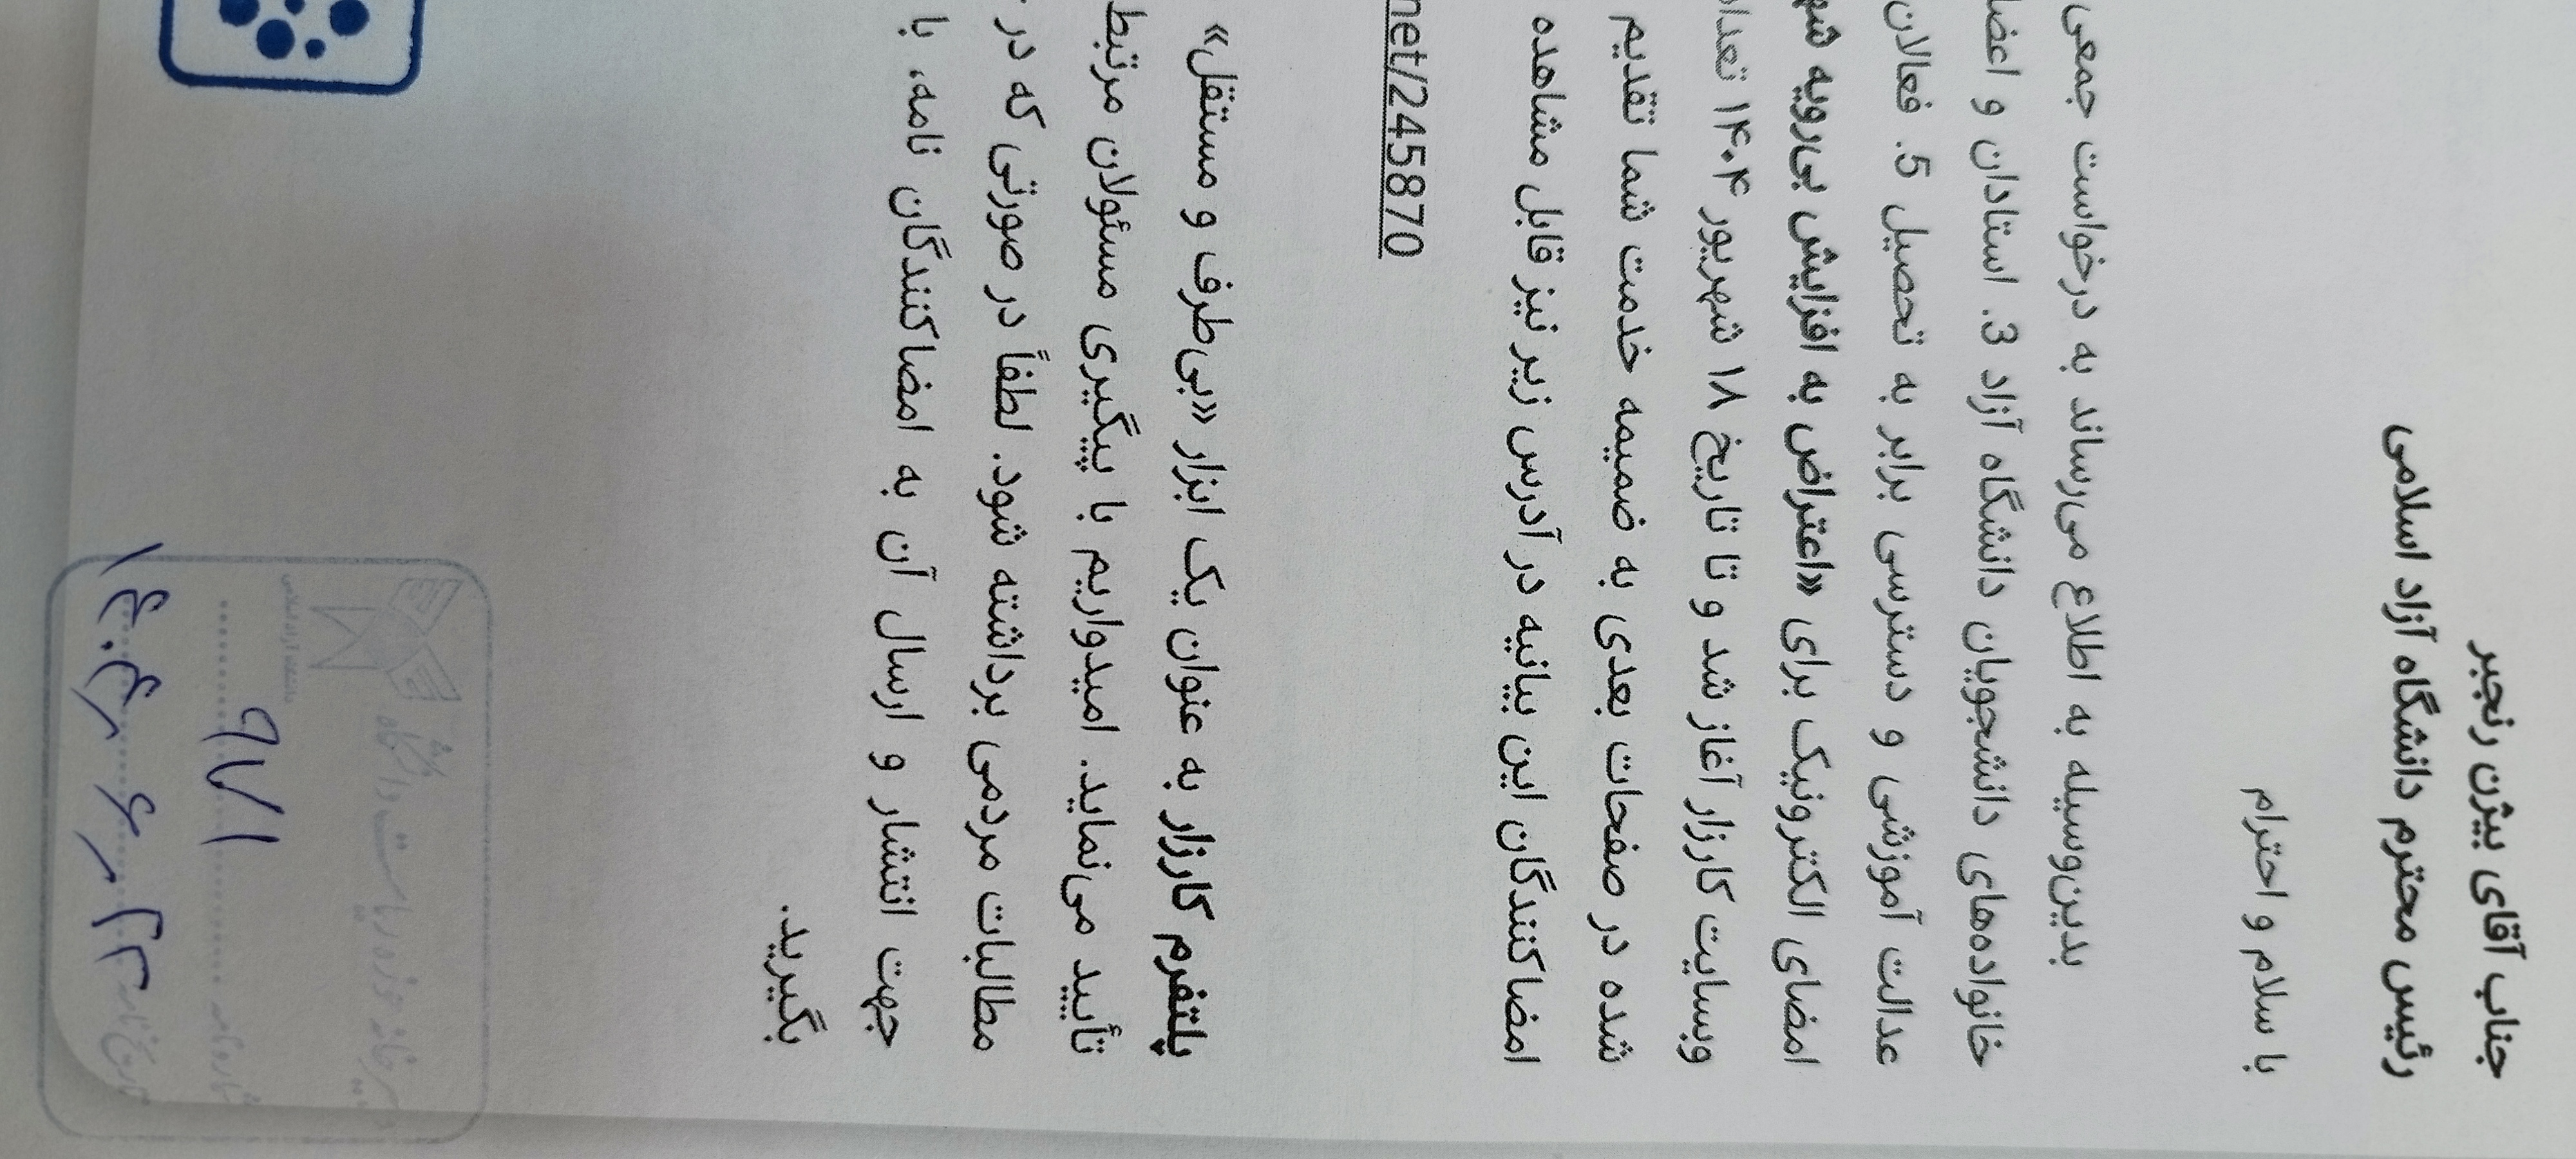 جناب آقای بیژن رنجبر
رئیس محترم دانشگاه آزاد اسلامی
با سلام و احترام
بدین‌وسیله به اطلاع می‌رساند به درخواست جمعی
خانواده‌های دانشجویان دانشگاه آزاد 3. استادان و اعضا
عدالت آموزشی و دسترسی برابر به تحصیل 5. فعالان
امضای الکترونیک برای «اعتراض به افزایش بی‌رویه شه
وبسایت کارزار آغاز شد و تا تاریخ ۱۸ شهریور ۱۴۰۴ تعداد
شده در صفحات بعدی به ضمیمه خدمت شما تقدیم
امضاکنندگان این بیانیه در آدرس زیر نیز قابل مشاهده
net/245870
پلتفرم کارزار به عنوان یک ابزار «بی‌طرف و مستقل»
تأیید می‌نماید. امیدواریم با پیگیری مسئولان مرتبط
مطالبات مردمی برداشته شود. لطفاً در صورتی که در
جهت انتشار و ارسال آن به امضاکنندگان نامه، با
بگیرید.
دانشگاه آزاد اسلامی
دبیرخانه حوزه ریاست دانشگاه
شماره نامه
تاریخ نامه